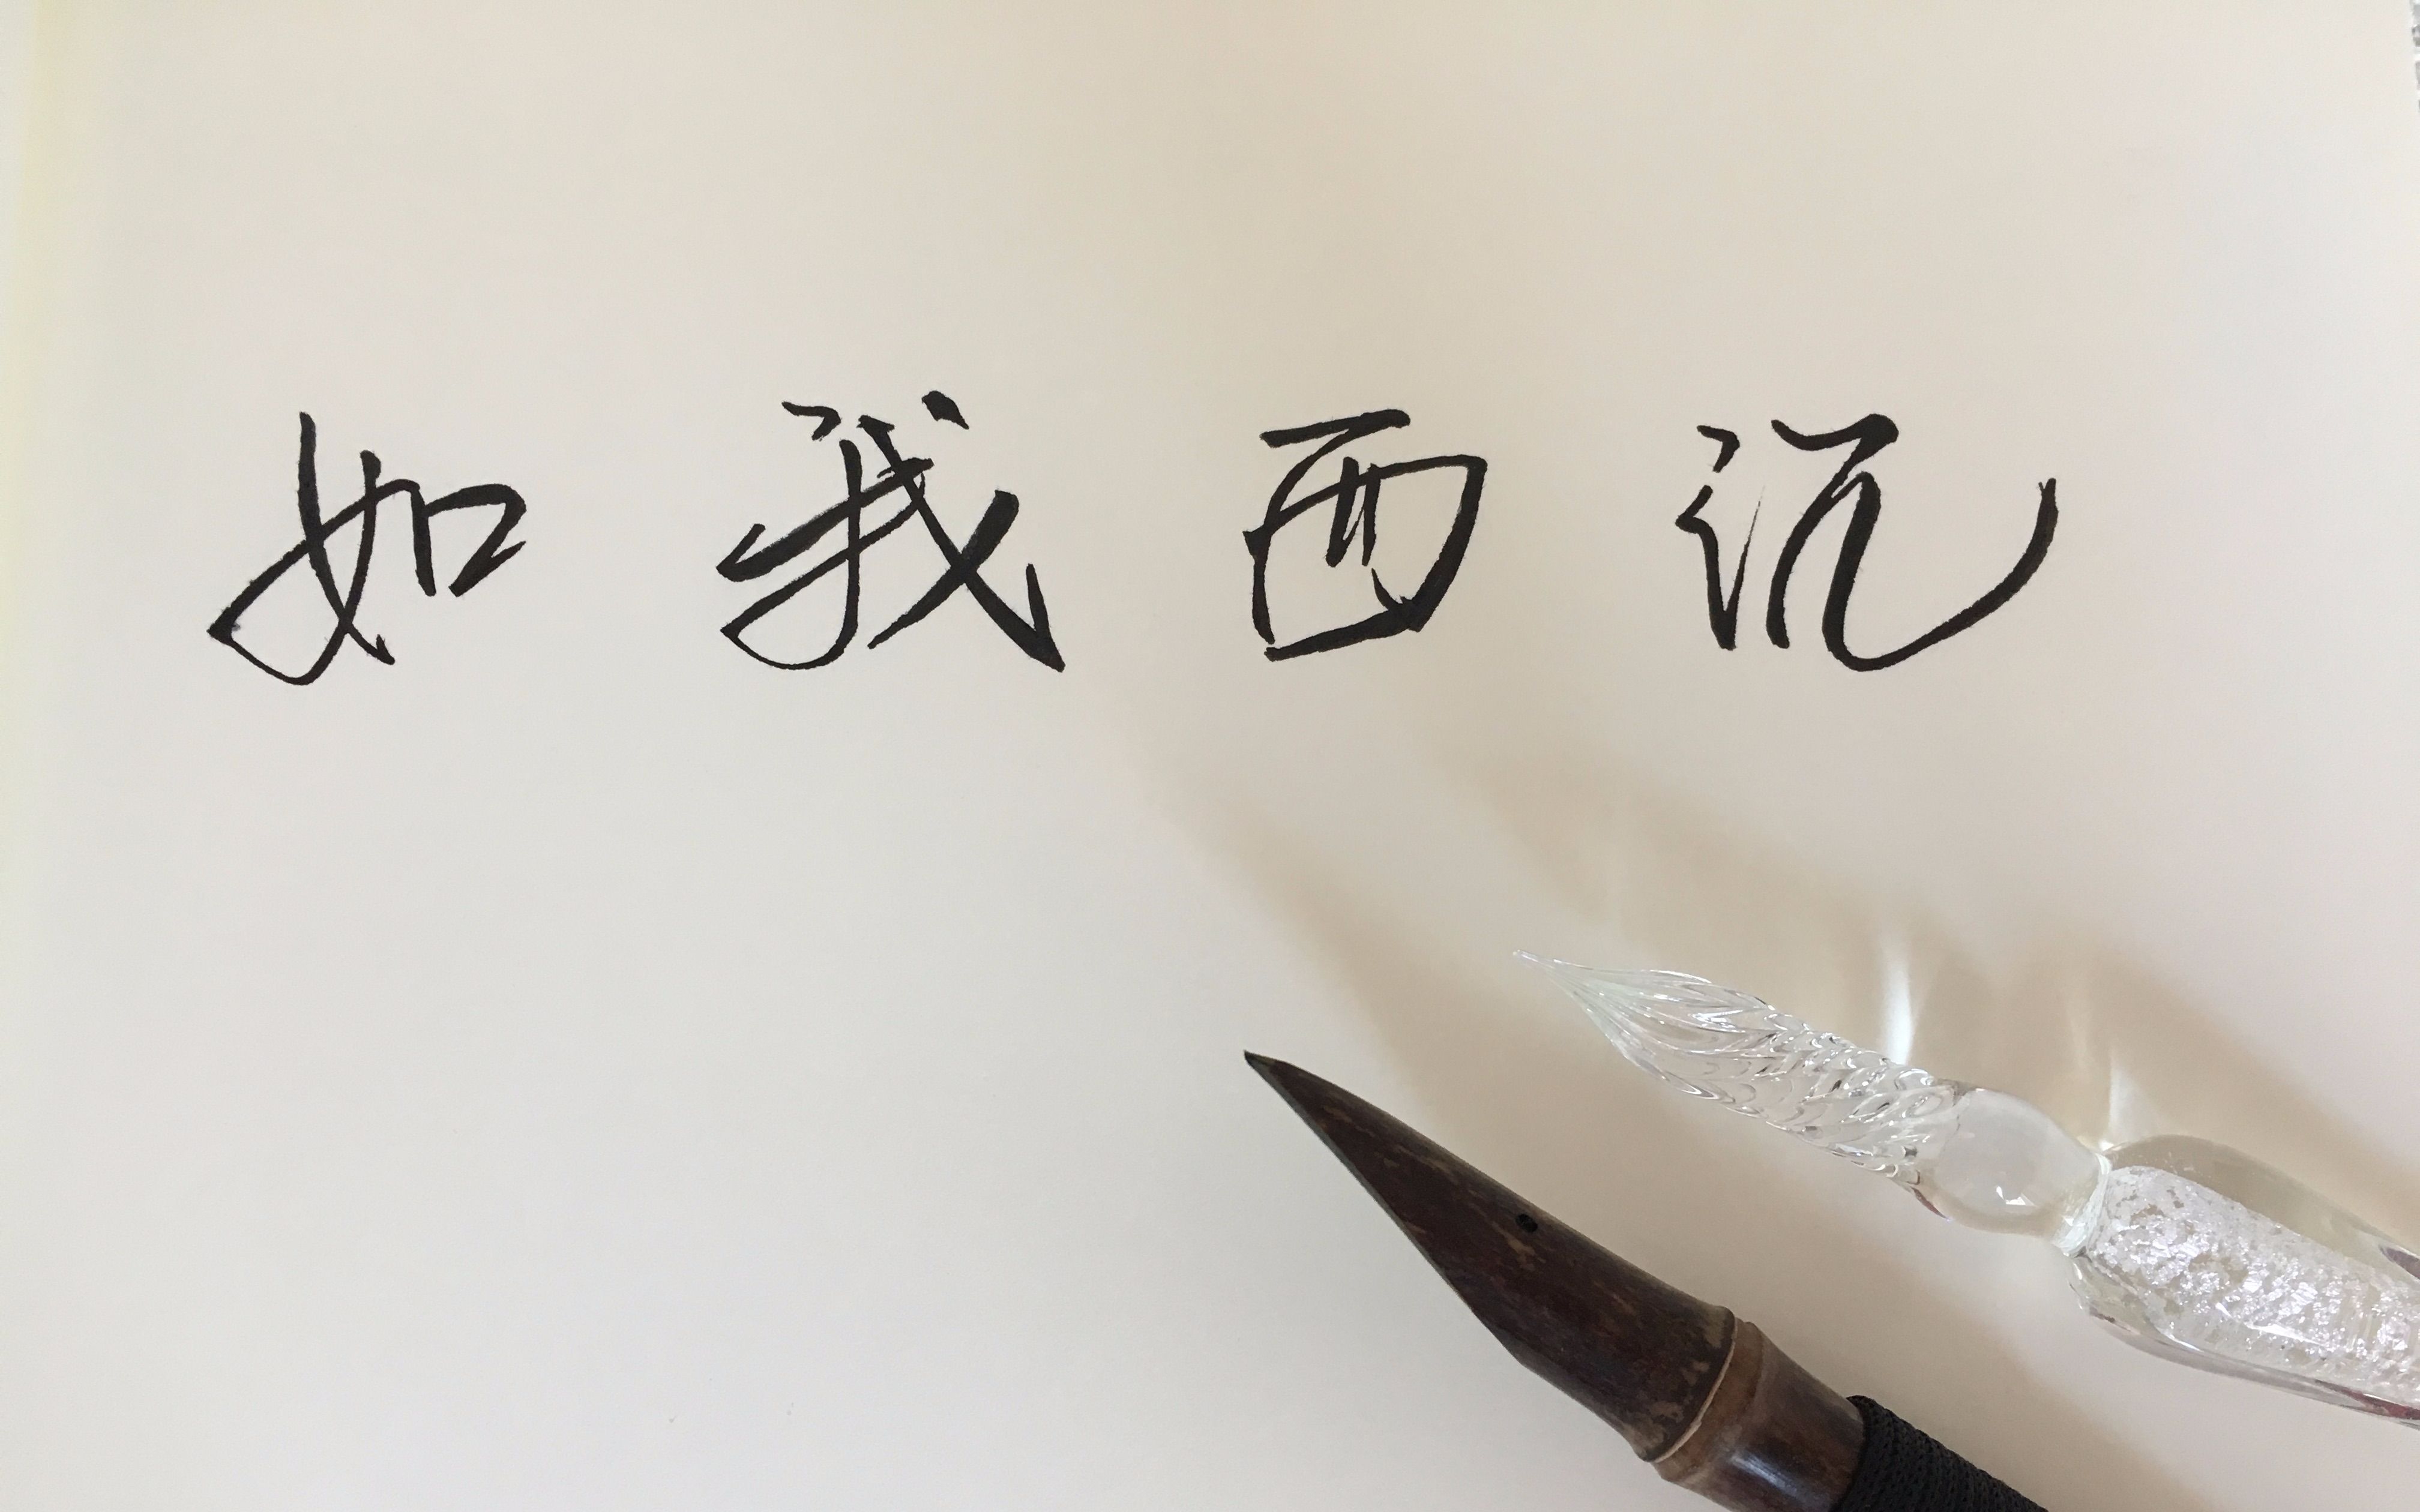 如我西沉